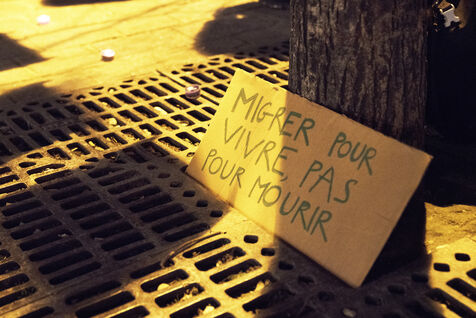 MIGRER POUR
VIVRE, PAS
POUR MOURIR